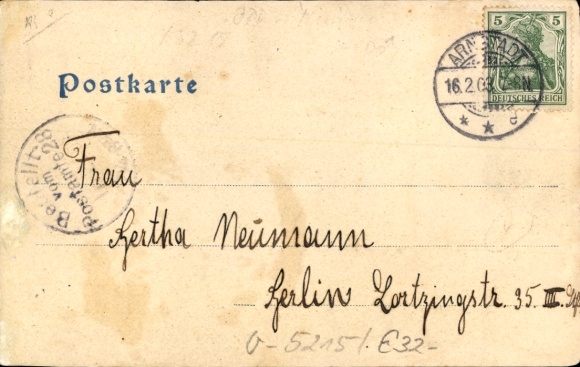 Postkarte
5 5
DEUTSCHES REICH
ARNSTADT
16.2.03
* *
e
Bestellt
vom
Postamte
Frau
Hertha Neumann
Berlin Lortzingstr. 35 III.
V-5215/. E32-